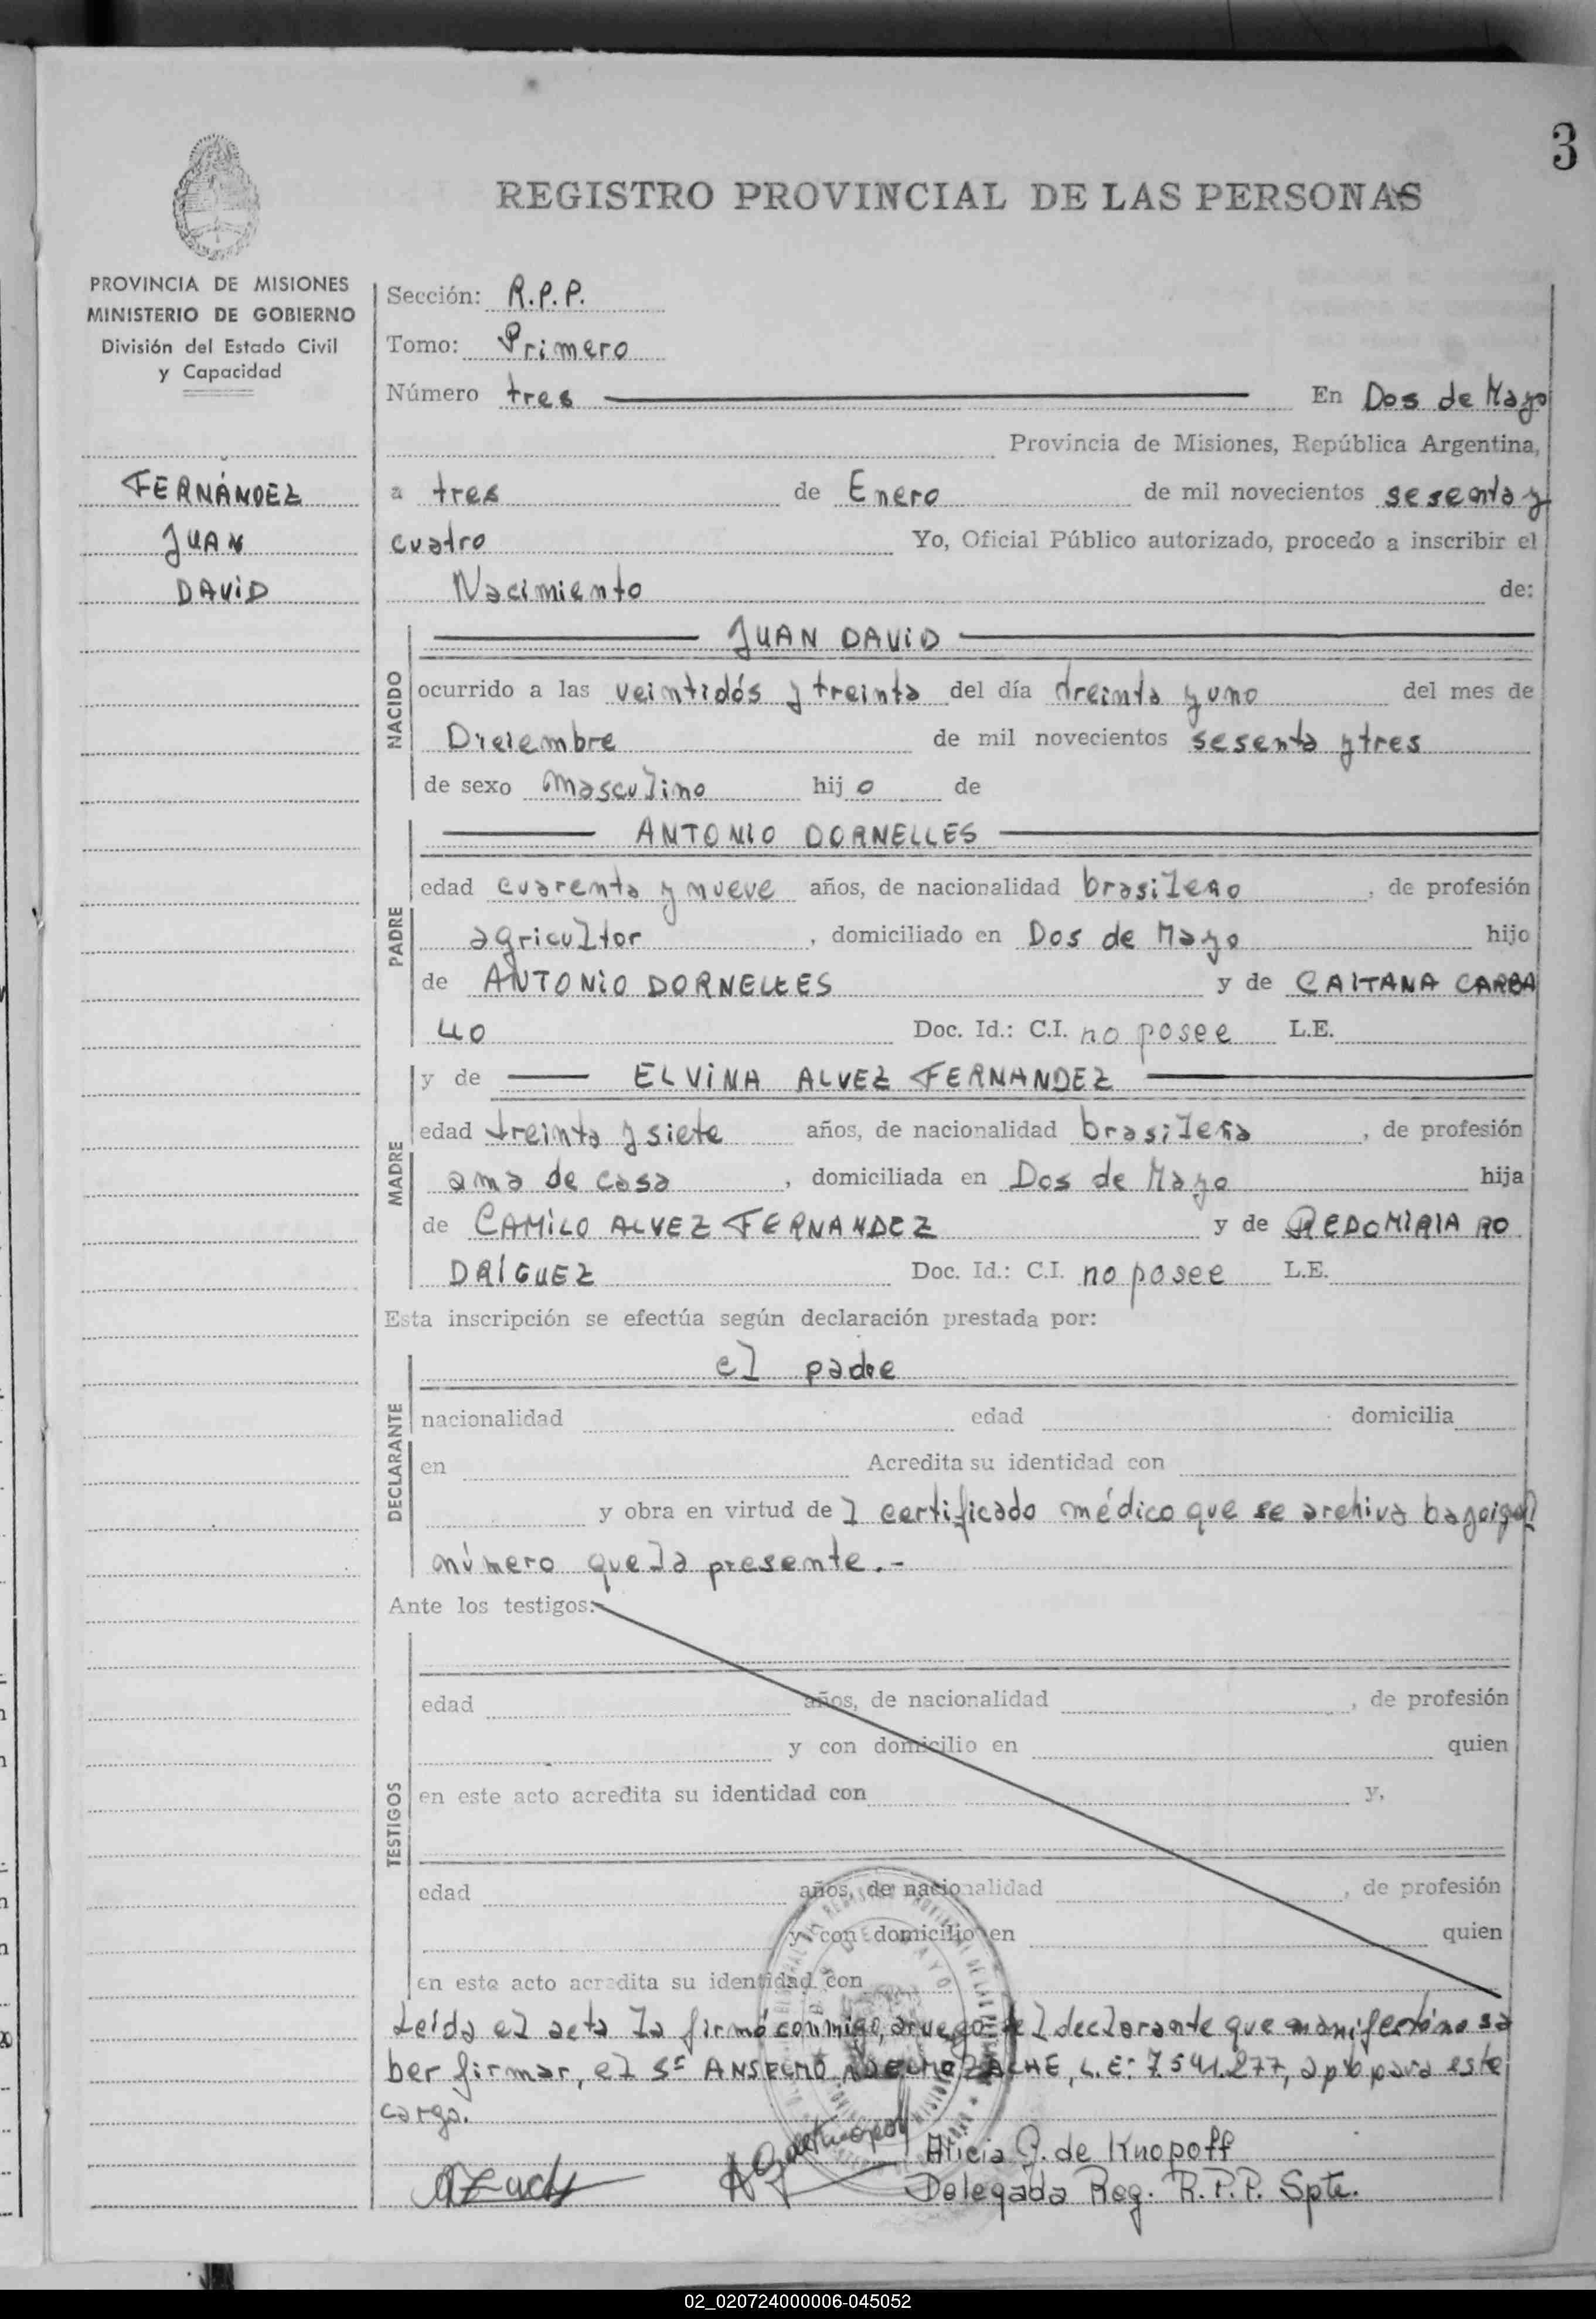 3
REGISTRO PROVINCIAL DE LAS PERSONAS
PROVINCIA DE MISIONES
MINISTERIO DE GOBIERNO
División del Estado Civil
y Capacidad
FERNÁNDEZ
JUAN
DAVID
Sección: R.P.P.
Tomo: Primero
Número tres En Dos de Mayo
Provincia de Misiones, República Argentina,
a tres de Enero de mil novecientos sesenta y
cuatro Yo, Oficial Público autorizado, procedo a inscribir el
Nacimiento de:
NACIDO
JUAN DAVID
ocurrido a las veintidós y treinta del día treinta y uno del mes de
Diciembre de mil novecientos sesenta y tres
de sexo masculino hijo de
PADRE
ANTONIO DORNELLES
edad cuarenta y nueve años, de nacionalidad brasileño, de profesión
agricultor, domiciliado en Dos de Mayo hijo
de ANTONIO DORNELLES y de CAITANA CARBA
LLO Doc. Id.: C.I. no posee L.E.
MADRE
y de ELVINA ALVEZ FERNANDEZ
edad treinta y siete años, de nacionalidad brasileña, de profesión
ama de casa, domiciliada en Dos de Mayo hija
de CAMILO ALVEZ FERNANDEZ y de REDOMIRIA RO
DRÍGUEZ Doc. Id.: C.I. no posee L.E.
Esta inscripción se efectúa según declaración prestada por:
DECLARANTE
el padre
nacionalidad edad domicilia
en Acredita su identidad con
y obra en virtud de l certificado médico que se archiva bajo igual
número que la presente.-
Ante los testigos:
TESTIGOS
edad años, de nacionalidad, de profesión
y con domicilio en quien
en este acto acredita su identidad con y,
edad años, de nacionalidad, de profesión
y con domicilio en quien
en este acto acredita su identidad con
Leída el acta la firmó conmigo, a ruego de l declarante que manifestó no sa
ber firmar, el Sr ANSELMO ADELMO ZACHE, L.E: 7.541.277, apto para este
cargo.
Alicia G. de Knopoff
Delegada Reg. R.P.P. Spte.
02_020724000006-045052